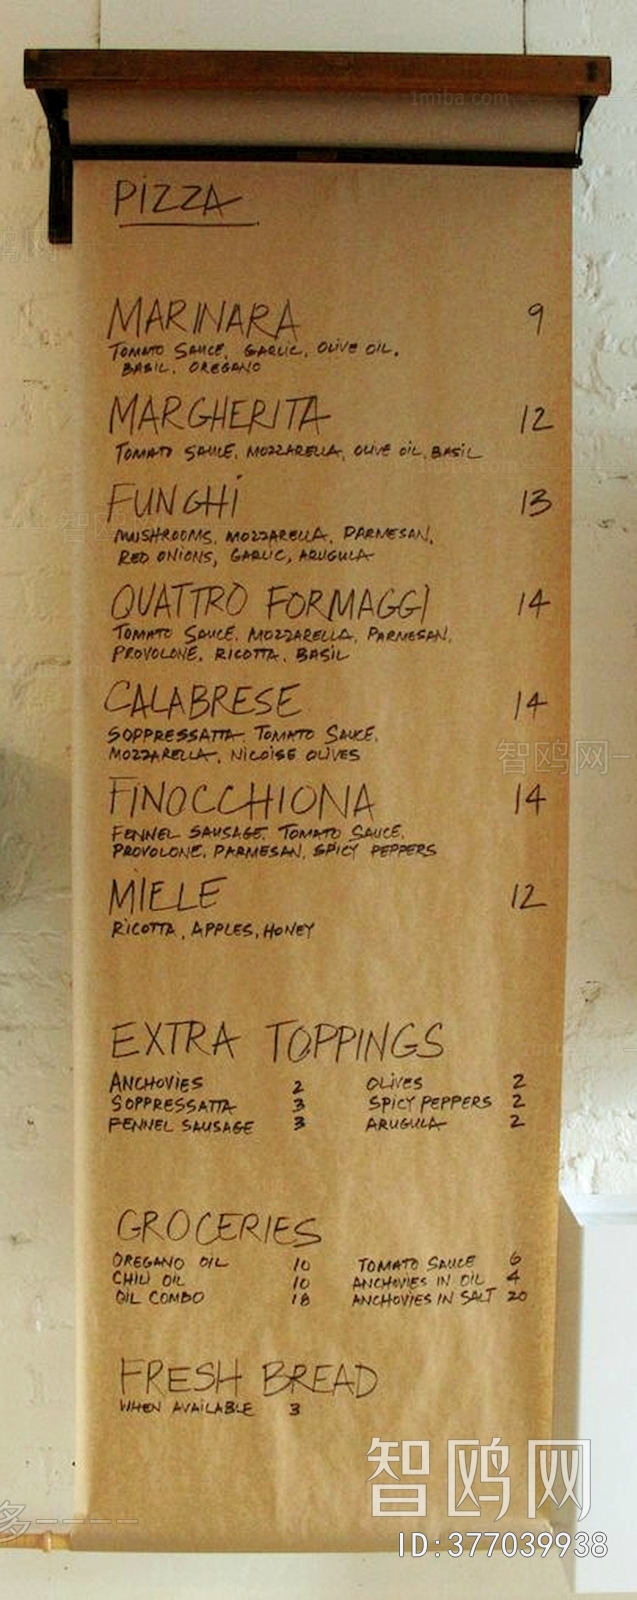 1miba.com
PIZZA
MARINARA 9
TOMATO SAUCE, GARLIC, OLIVE OIL,
BASIL, OREGANO
MARGHERITA 12
TOMATO SAUCE, MOZZARELLA, OLIVE OIL, BASIL
FUNGHI 13
MUSHROOMS, MOZZARELLA, PARMESAN,
RED ONIONS, GARLIC, ARUGULA
QUATTRO FORMAGGI 14
TOMATO SAUCE, MOZZARELLA, PARMESAN,
PROVOLONE, RICOTTA, BASIL
CALABRESE 14
SOPPRESSATTA, TOMATO SAUCE,
MOZZARELLA, NICOISE OLIVES
智鸥网
FINOCCHIONA 14
FENNEL SAUSAGE, TOMATO SAUCE,
PROVOLONE, PARMESAN, SPICY PEPPERS
MIELE 12
RICOTTA, APPLES, HONEY
EXTRA TOPPINGS
ANCHOVIES 2 OLIVES 2
SOPPRESSATTA 3 SPICY PEPPERS 2
FENNEL SAUSAGE 3 ARUGULA 2
GROCERIES
OREGANO OIL 10 TOMATO SAUCE 6
CHILI OIL 10 ANCHOVIES IN OIL 4
OIL COMBO 18 ANCHOVIES IN SALT 20
FRESH BREAD
WHEN AVAILABLE 3
智鸥网
ID:377039938